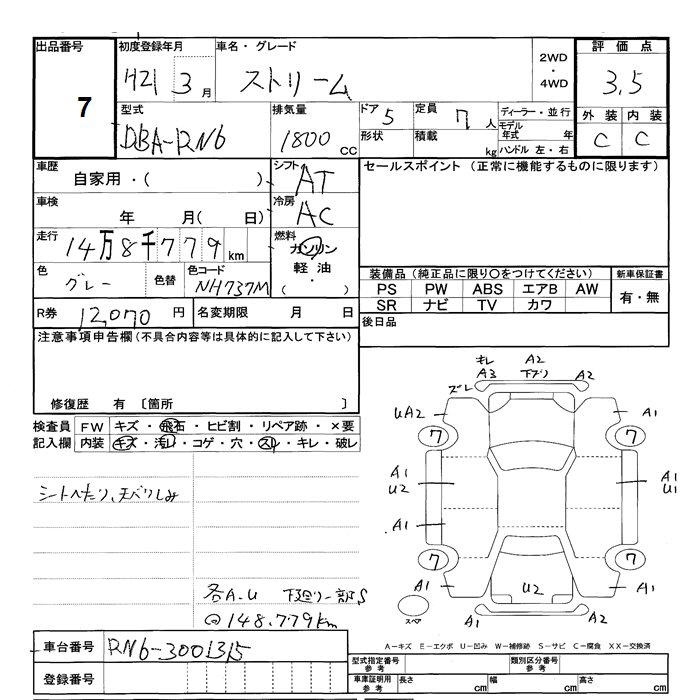 出品番号 初度登録年月 車名・グレード 2WD・4WD 評価点
7 H21 3月 ストリーム 3.5
型式 排気量 ドア 5 定員 7人 ディーラー・並行 外装 内装
DBA-RN6 1800cc 形状 積載 kg モデル年式 年 ハンドル 左・右 C C
車歴 自家用・( ) シフト AT セールスポイント (正常に機能するものに限ります)
車検 年 月( 日) 冷房 AC
走行 14万8千779km 燃料 ガソリン
色 グレー 色替 色コード NH737M 軽油・( )
装備品 (純正品に限り〇をつけてください) 新車保証書
PS PW ABS エアB AW 有・無
SR ナビ TV カワ
R券 12,070円 名変期限 月 日 後日品
注意事項申告欄(不具合内容等は具体的に記入して下さい)
修復歴 有 〔箇所 〕
検査員 FW キズ・飛石・ヒビ割・リペア跡・×要
記入欄 内装 キズ・汚れ・コゲ・穴・スレ・キレ・破レ
シートヘたり、天バリしみ
各A.U 下廻り一部S
@148.779km
キレ A2
A3 下ズリ A2
ズレ
UA2 A1
7 7
A1 A1
U2 U1
A1
7 7
A1 U2 A1
スペア A2
A-キズ E-エクボ U-凹み W-補修跡 S-サビ C-腐食 XX-交換済
車台番号 RN6-3001315
登録番号
型式指定番号 参考 類別区分番号 参考
車庫証明用 参考 長さ cm 幅 cm 高さ cm